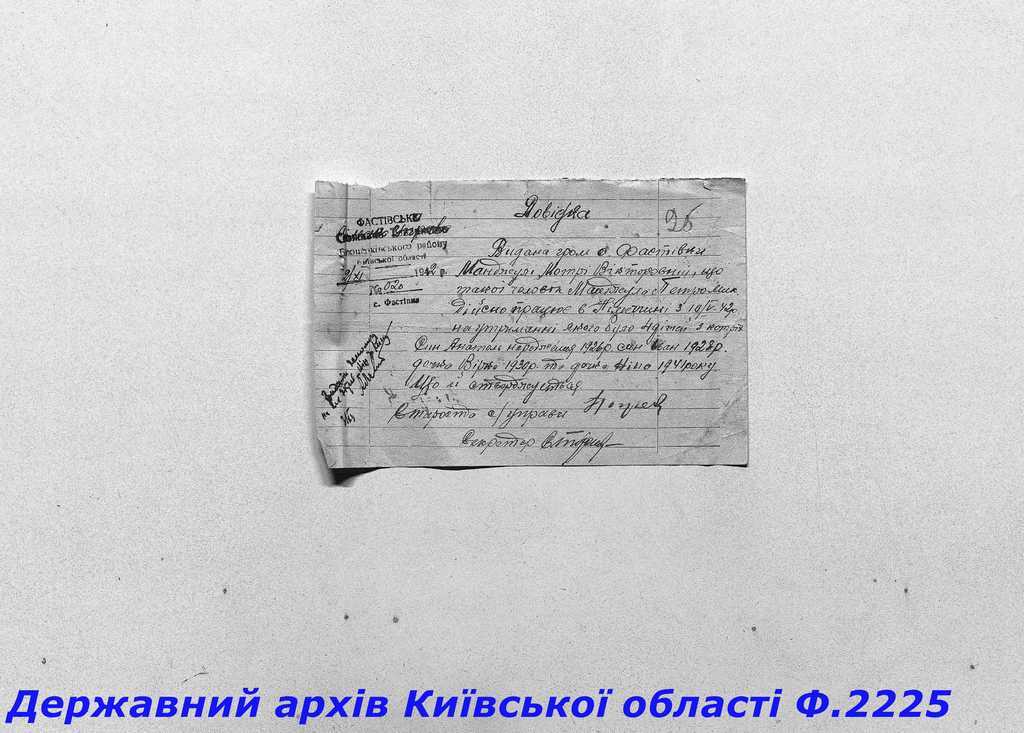 Довідка
95
ФАСТІВСЬКЕ
району
Київської області
1942 р.
№ 020
с. Фастівка
Видана гром. с. Фастівки
Манджул Мотрі Вікторовній, що
чоловік Манджула Петро Мик.
Дійсно працює в Німеччині з 10/V-42р.
на утриманні якого було 4 дітей з котрих
Син Анатол народження 1926р. син Іван 1928р.
дочка Віра 1930р. та дочка Ніна 1941 року.
Що й стверджується
Староста с/управи
Секретар
Державний архів Київської області Ф.2225